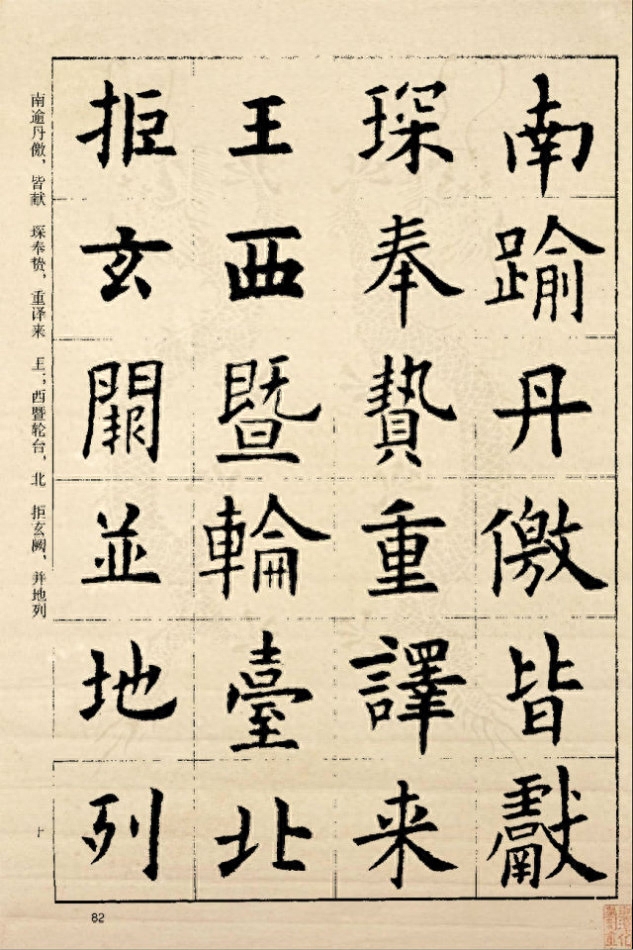 南踰丹儌皆獻
琛奉贄重譯来
王西暨輪臺北
拒玄闕並地列
南逾丹儌，皆献　琛奉贽，重译来　王；西暨轮台，北　拒玄阙，并地列
82